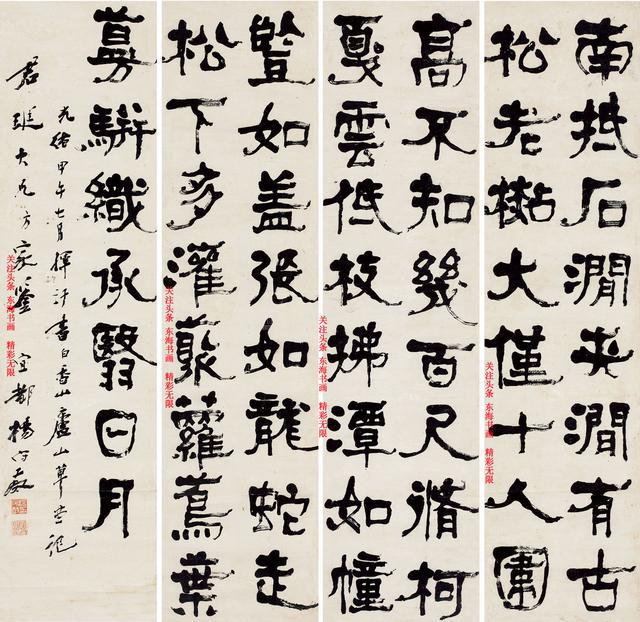 南抵石澗夾澗有古
松老檆大僅十人圍
高不知幾百尺脩柯
戛雲低枝拂潭如幢
豎如盖張如龍蛇走
松下多灌叢蘿蔦葉
蔓駢織承翳日月
光緒甲午七月揮汗書白香山廬山草堂記
大兄方家鑒 宜都楊守敬
关注头条 东海书画 精彩无限
关注头条 东海书画 精彩无限
关注头条 东海书画 精彩无限
关注头条 东海书画 精彩无限